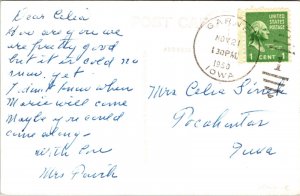 Dear Celia
How are you we
are pretty good
but it is cold no
snow yet.
I don't know when
Marie will come
Maybe you could
come along.
with love
Mrs
POST CARD
GARN
NOV 21
1 30 PM
1950
IOWA
1 CENT 1
Mrs Celia
Pocahontas
Iowa